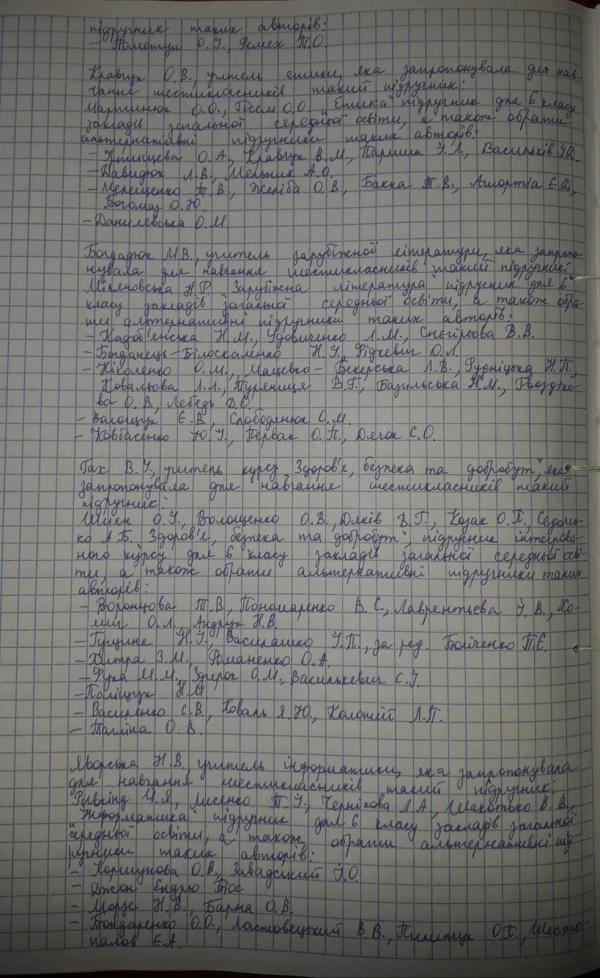 підручник таких авторів:
– Пометун О.І., Ремех Т.О.
Кравчук О.В., учитель етики, яка запропонувала для нав-
чання шестикласників такий підручник:
Мартинюк О.О., Гісем О.О., Етика підручник для 6 класу
закладів загальної середньої освіти, а також обрати
альтернативні підручники таких авторів:
– Кришмарел О.А., Кравчук В.М., Паршин І.Л., Васильків І.Д.
– Давидюк Л.В., Мельник А.О.
– Мелещенко Т.В., Желіба О.В., Бакка Т.В., Ашортіа Є.Д.,
Богомаз О.Ю
– Данилевська О.М.
Богдадюк М.В., учитель зарубіжної літератури, яка запропо-
нувала для навчання шестикласників такий підручник:
Міляновська Н.Р. Зарубіжна література підручник для 6
класу закладів загальної середньої освіти, а також обра-
ти альтернативні підручники таких авторів:
– Кадоб'янська Н.М., Удовиченко Л.М., Снєгірьова В.В.
– Богданець-Білоскаленко Н.І., Фідкевич О.Л.
– Ніколенко О.М., Мацевко-Бекерська Л.В., Рудніцька Н.П.,
Ковальова Л.Л., Туряниця В.Г., Базильська Н.М., Гвоздіко-
ва О.В., Лебедь Д.О.
– Волощук Є.В., Слободянюк О.М.
– Ковбасенко Ю.І., Первак О.П., Дячок С.О.
Гах В.І, учитель курсу "Здоров'я, безпека та добробут", яка
запропонувала для навчання шестикласників такий
підручник:
Шиян О.І., Волощенко О.В., Дяків В.Г., Козак О.П., Седочен-
ко А.Б. "Здоров'я, безпека та добробут", підручник інтегрова-
ного курсу для 6 класу закладів загальної середньої осві-
ти, а також обрати альтернативні підручники таких
авторів:
– Воронцова Т.В., Пономаренко В.С., Лаврентьєва І.В., Хо-
мич О.Л., Андрук Н.В.
– Гущина Н.І., Василашко І.П., за ред. Бойченко Т.Є.
– Хитра З.М., Романенко О.А.
– Фука М.М., Здерок О.М., Василькевич С.І.
– Поліщук Н.М
– Василенко С.В., Коваль Я.Ю, Колотій Л.П.
– Тагліна О.В.
Яворська Н.В, учитель інформатики, яка запропонувала
для навчання шестикласників такий підручник:
Ривкінд Й.Я., Лисенко Т.І., Чернікова Л.А., Шакотько В.В.,
"Інформатика" підручник для 6 класу закладів загальної
середньої освіти, а також обрати альтернативні під-
ручники таких авторів:
– Коршунова О.В., Завадський І.О.
– Джон Ендрю Біос
– Морзе Н.В., Барна О.В.
– Бондаренко О.О., Ластовецький В.В., Пилипчук О.П., Шесто-
палов Є.А.